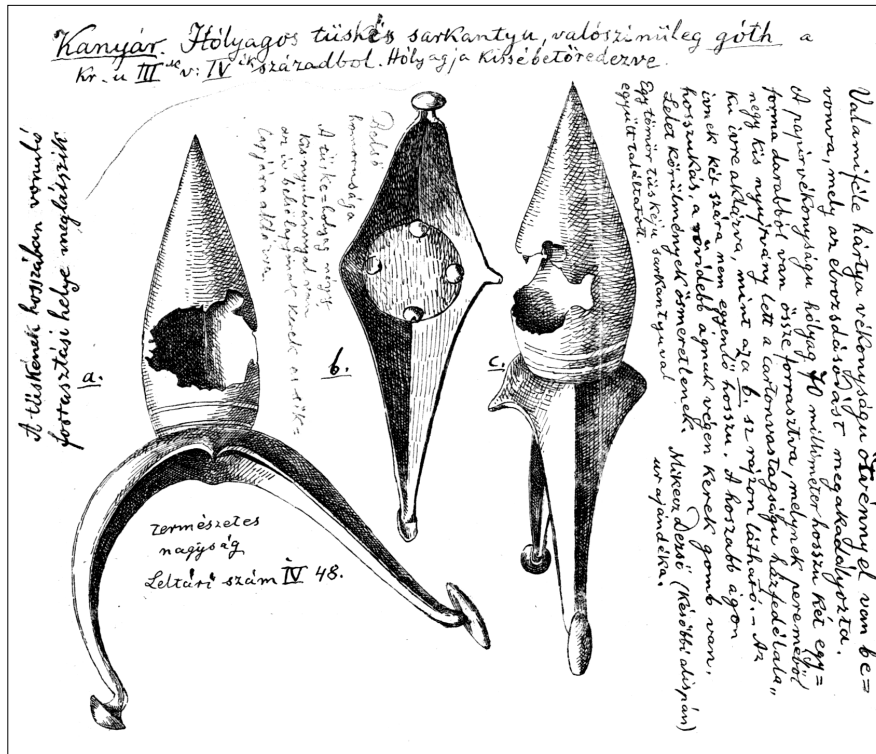 Kanyár. Hólyagos tüskés sarkantyu, valószinüleg góth a
Kr. u III ik v: IV ik századbol. Hólyagja kissé betöredezve.
A tüskének hosszában vonuló
forrasztási helye meglátszik.
a.
b.
c.
Belső
A tüske=hólyag négy
lapjára
természetes
nagyság
Leltári szám IV 48.
Valamiféle hártya vékonyságu ötvénnyel van be=
vonva, mely az elrozsdásodást megakadályozta.
A papirvékonyságu hólyag 70 milliméter hosszu két egy=
forma darabból van össze forrasztva, melynek pereméből
négy kis nyujtvány lett a cartonvastagságu házfedélala„
ku ivre aklázva, mint azt a b. sz rajzon látható. – Az
ivnek két szára nem egyenlő hosszu. A hoszabb ágon
hosszukás, a rövidebb ágnak végén kerek gomb van.
Lelet körülmények ösmeretlenek.
Egy tömör tüskéjü sarkantyuval
együtt találtatott.
Mikecz Dezső (későbbi alispán)
ur ajándéka.